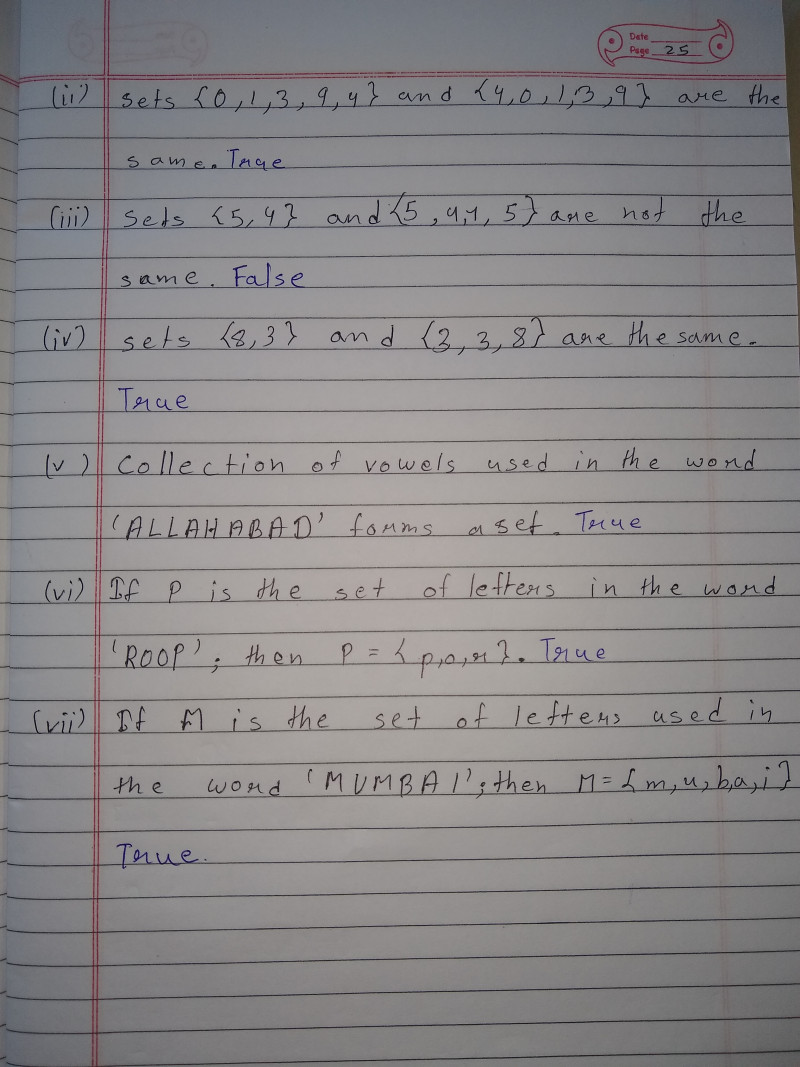 Date
Page 25
(ii) sets {0,1,3,9,4} and {4,0,1,3,9} are the
same. True
(iii) Sets {5,4} and {5,4,4,5} are not the
same. False
(iv) sets {8,3} and {3,3,8} are the same.
True
(v) Collection of vowels used in the word
'ALLAHABAD' forms a set. True
(vi) If P is the set of letters in the word
'ROOP'; then P = {p,o,r}. True
(vii) If M is the set of letters used in
the word 'MUMBAI'; then M={m,u,b,a,i}
True.